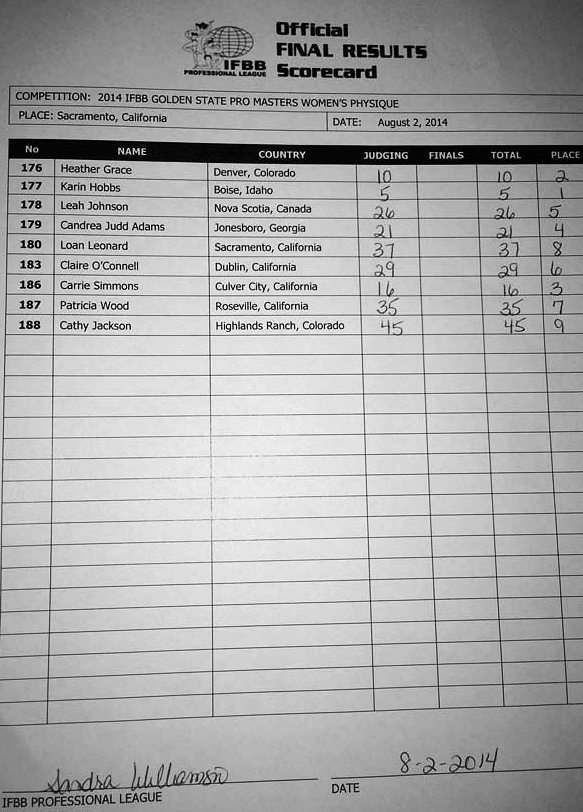 Official
FINAL RESULTS
Scorecard
IFBB
PROFESSIONAL LEAGUE
COMPETITION: 2014 IFBB GOLDEN STATE PRO MASTERS WOMEN'S PHYSIQUE
PLACE: Sacramento, California DATE: August 2, 2014
No NAME COUNTRY JUDGING FINALS TOTAL PLACE
176 Heather Grace Denver, Colorado 10 10 2
177 Karin Hobbs Boise, Idaho 5 5 1
178 Leah Johnson Nova Scotia, Canada 26 26 5
179 Candrea Judd Adams Jonesboro, Georgia 21 21 4
180 Loan Leonard Sacramento, California 37 37 8
183 Claire O'Connell Dublin, California 29 29 6
186 Carrie Simmons Culver City, California 16 16 3
187 Patricia Wood Roseville, California 35 35 7
188 Cathy Jackson Highlands Ranch, Colorado 45 45 9
Sandra Williamson 8-2-2014
IFBB PROFESSIONAL LEAGUE DATE